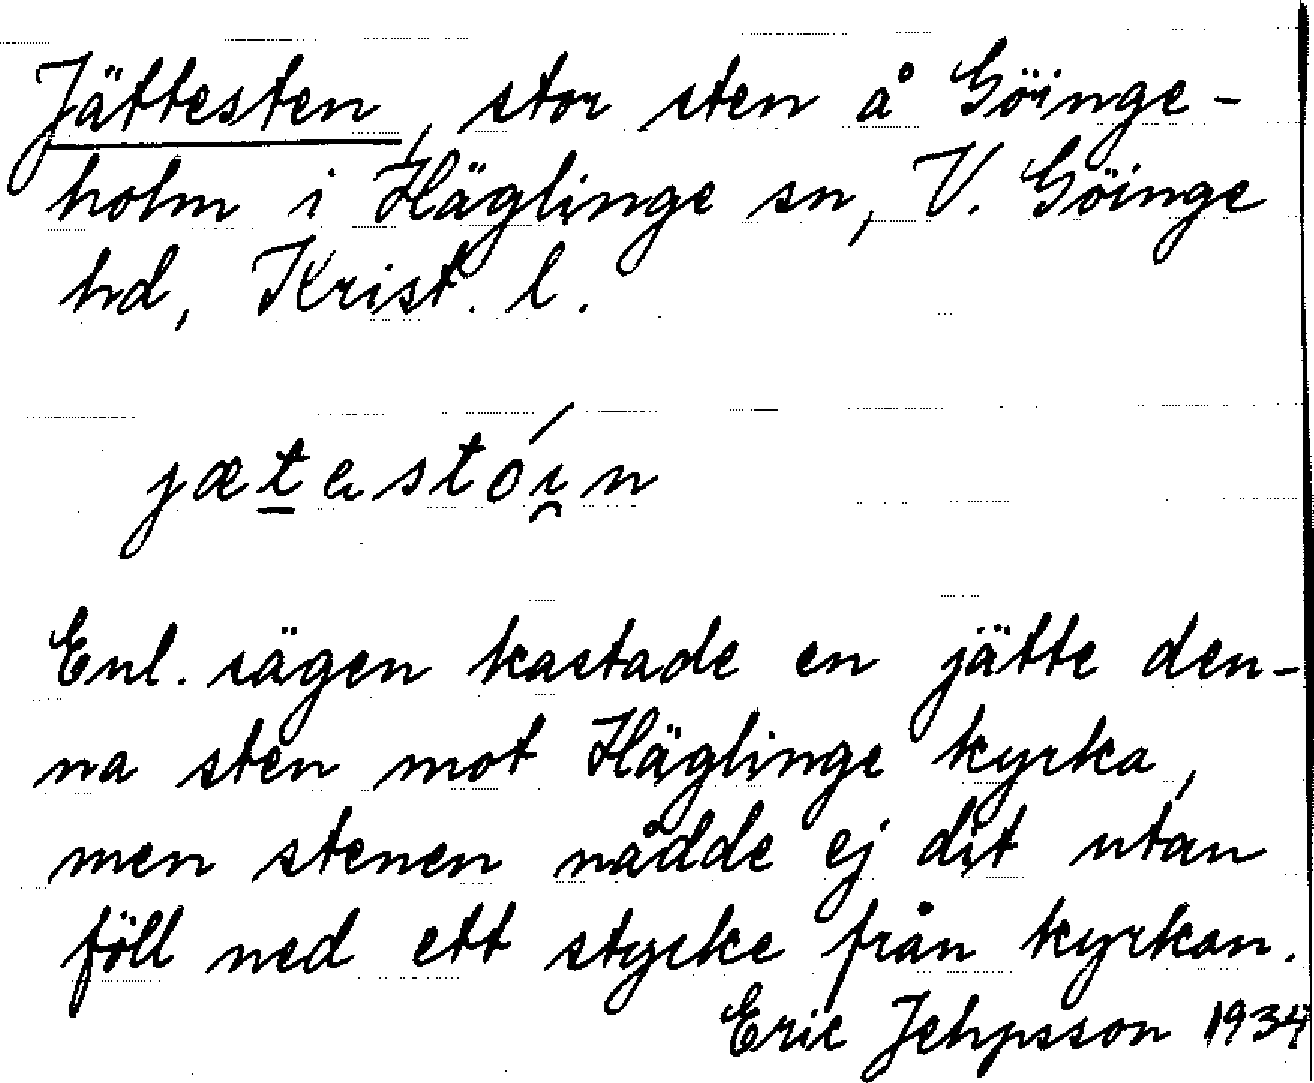 Jättesten, stor sten å Göinge-
holm i Häglinge sn, V. Göinge
hd, Krist. l.
jæt̲estói̯n
Enl. sägen kastade en jätte den-
na sten mot Häglinge kyrka,
men stenen nådde ej dit utan
föll ned ett stycke från kyrkan.
Eric Jehpsson 1934